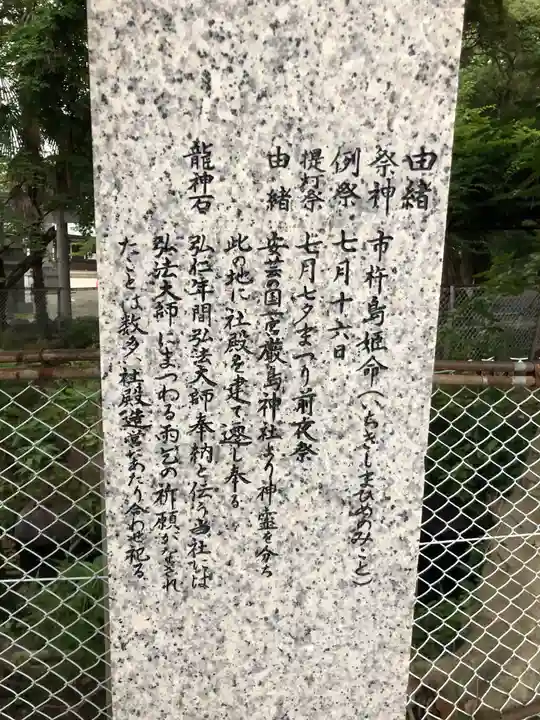 由緒
祭神 市杵島姫命(いちきしまひめのみこと)
例祭 七月十六日
提灯祭 七月七夕まつり前夜祭
由緒 安芸の国一宮厳島神社より神霊を分ち
此の地に社殿を建て遷し奉る
龍神石 弘仁年間弘法大師奉納と伝う当社には
弘法大師にまつわる雨乞の祈願がなされ
たことは数多く社殿造営にあたり合わせ祀る